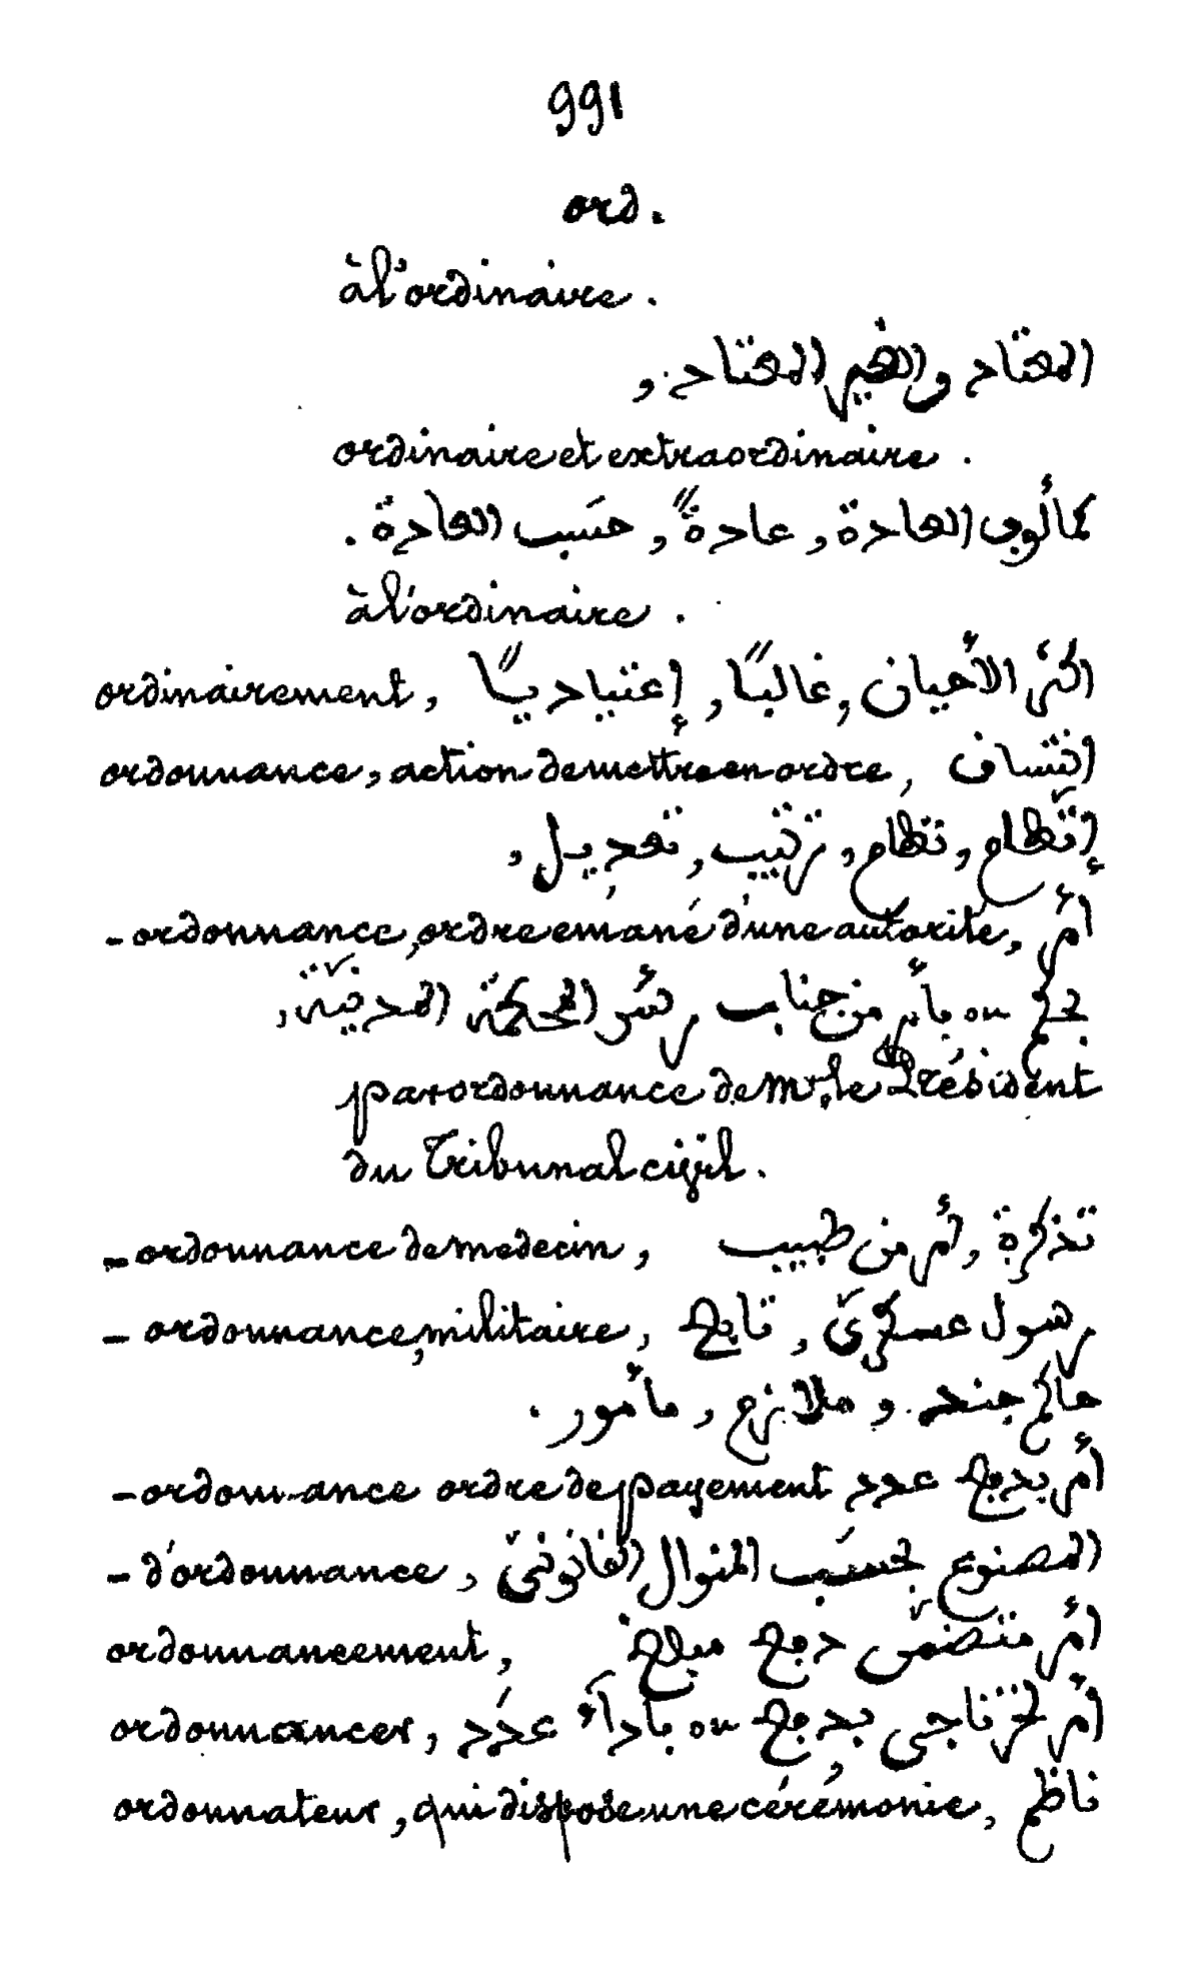 991
ord.
à l'ordinaire.
المعتاد والغير المعتاد،
ordinaire et extraordinaire.
كمألوف العادة، عادةً، حسَب العادة.
à l'ordinaire.
ordinairement, أكثر الأحيان، غالبًا، إعتياديًّا
ordonnance, action de mettre en ordre, انتساق
إنتّظام، نظام، ترتيب، تعديل،
- ordonnance, ordre émané d'une autorité, أمر
بحكم ou بأمر من جناب رئس المحكمة المدنيّة،
par ordonnance de Mr. le Président
du Tribunal civil.
- ordonnance de médecin, تذكرة، أمر من طبيب
- ordonnance, militaire, رسول عسكريّ، تابع
حاكم جند، و ملازم، مأمور.
- ordonnance ordre de payement أمر بدفع عدد
- d'ordonnance, المصنوع بحسَب المنوال القانونيّ
ordonnancement, أمر متضمّن دفع مبلغ
ordonnancer, أمر لخزناجي بدفع ou بأدآء عدَد
ordonnateur, qui dispose une cérémonie, ناظم